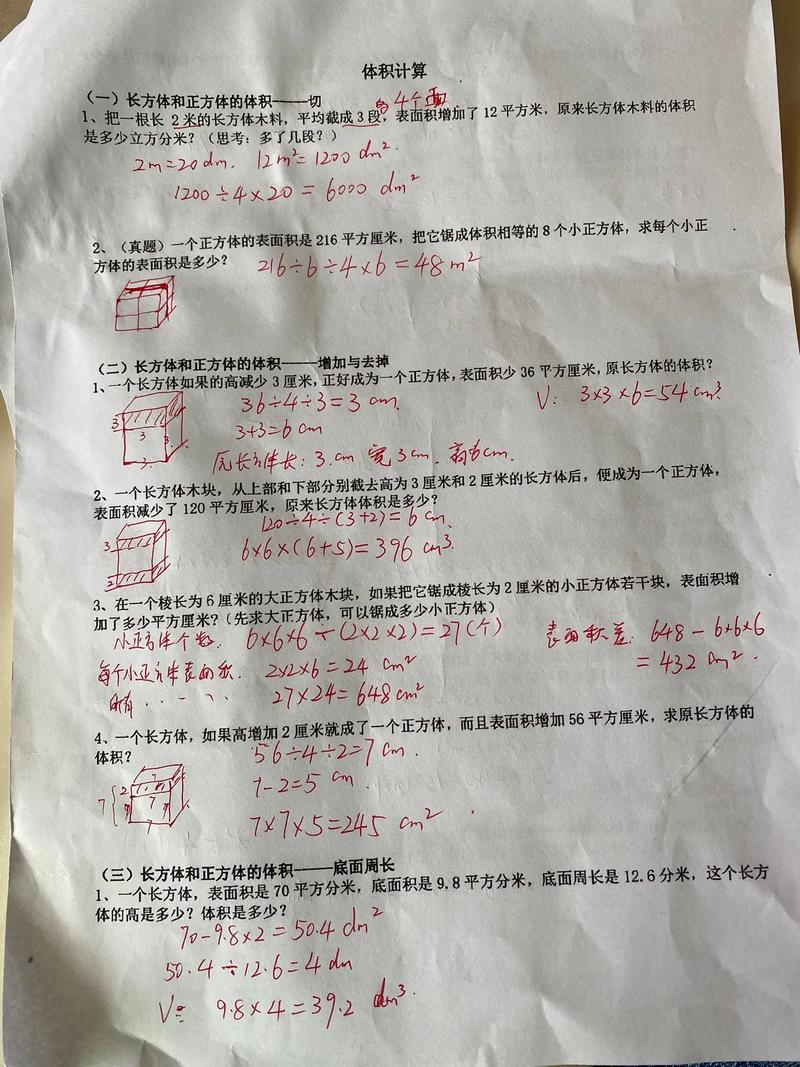 体积计算
(一)长方体和正方体的体积——切
多4个面
1、把一根长 2 米的长方体木料,平均截成 3 段,表面积增加了 12 平方米,原来长方体木料的体积
是多少立方分米?(思考:多了几段?)
2m=20dm. 12m²=1200 dm².
1200÷4×20=6000 dm²
2、(真题)一个正方体的表面积是 216 平方厘米,把它锯成体积相等的 8 个小正方体,求每个小正
方体的表面积是多少?
216÷6÷4×6=48m²
(二)长方体和正方体的体积——增加与去掉
1、一个长方体如果的高减少 3 厘米,正好成为一个正方体,表面积少 36 平方厘米,原长方体的体积?
36÷4÷3=3 cm. V: 3×3×6=54cm³.
3+3=6cm
3 3 3 3
原长方体长:3.cm 宽3cm. 高6cm.
2、一个长方体木块,从上部和下部分别截去高为 3 厘米和 2 厘米的长方体后,便成为一个正方体,
表面积减少了 120 平方厘米,原来长方体体积是多少?
120÷4÷(3+2)=6 cm.
3
6×6×(6+5)=396 cm³.
2
3、在一个棱长为 6 厘米的大正方体木块,如果把它锯成棱长为 2 厘米的小正方体若干块,表面积增
加了多少平方厘米?(先求大正方体,可以锯成多少小正方体)
小正方体个数. 6×6×6÷(2×2×2)=27(个) 表面积差: 648-6×6×6
每个小正方体表面积. 2×2×6=24 cm² =432 cm².
所有 . . . . 27×24=648cm²
4、一个长方体,如果高增加 2 厘米就成了一个正方体,而且表面积增加 56 平方厘米,求原长方体的
体积?
56÷4÷2=7 cm.
7-2=5 cm.
7 2 7 7 7
7×7×5=245 cm².
(三)长方体和正方体的体积——底面周长
1、一个长方体,表面积是 70 平方分米,底面积是 9.8 平方分米,底面周长是 12.6 分米,这个长方
体的高是多少?体积是多少?
70-9.8×2=50.4 dm²
50.4÷12.6=4 dm
V= 9.8×4=39.2 dm³.